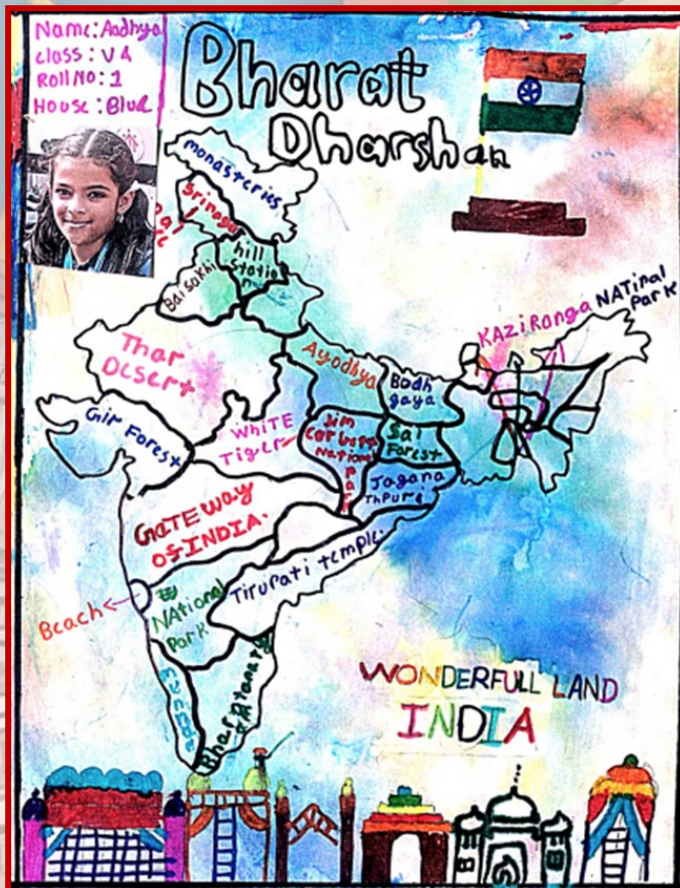 Name: Aadhya
class : V A
Roll No: 1
House : Blue
Bharat
Dharshan
monasteries
Srinagar
hill
Station
Baisakhi
Thar
Desert
Ayodhya
Bodh
gaya
KAZiRanga NATinal
Park
Gir Forest
WHITE
Tiger
Jim
Corbett
National
Park
Sal
Forest
Jagana
ThPuri
GATEWay
Of INDIA.
Tirupati temple.
Beach
NAtional
Park
munnar
WONDERFULL LAND
INDIA